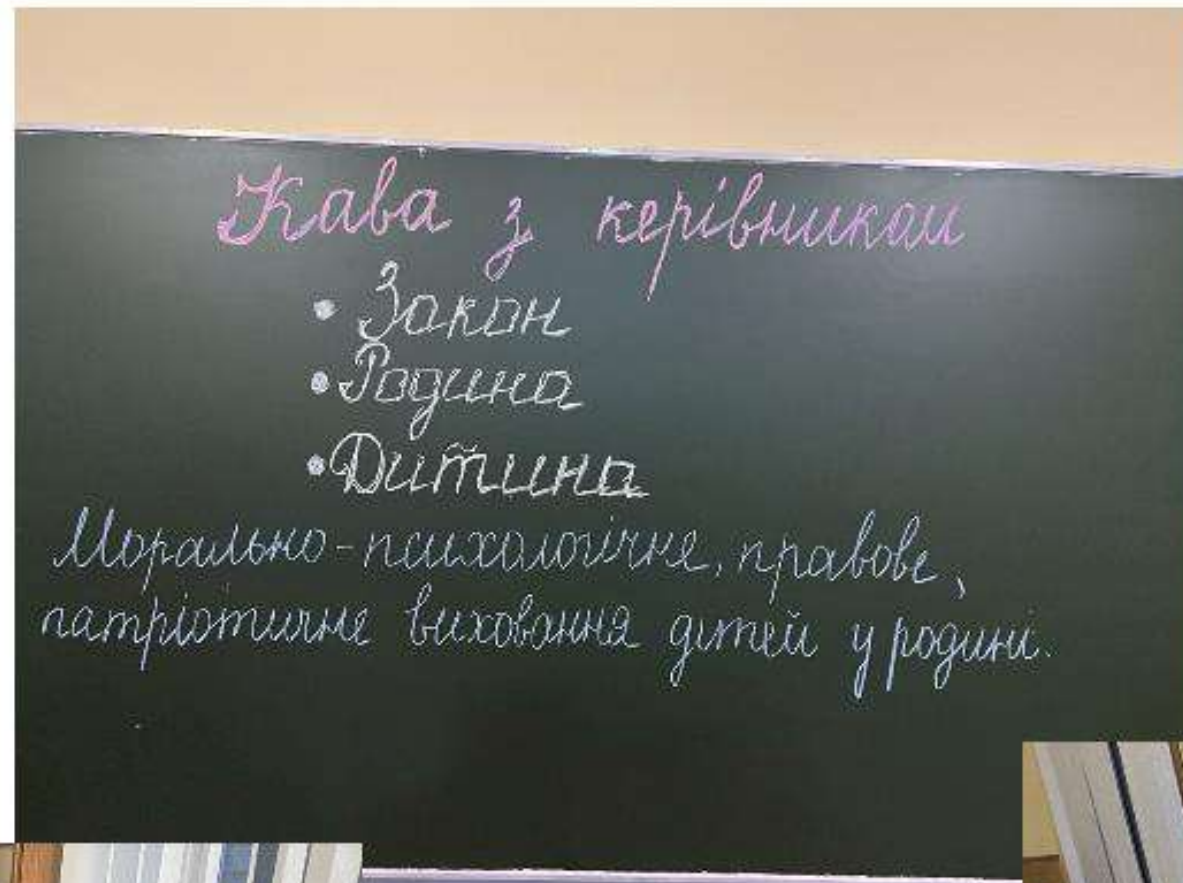 Кава з керівником
• Закон
• Родина
• Дитина
Морально-психологічне, правове,
патріотичне виховання дітей у родині.